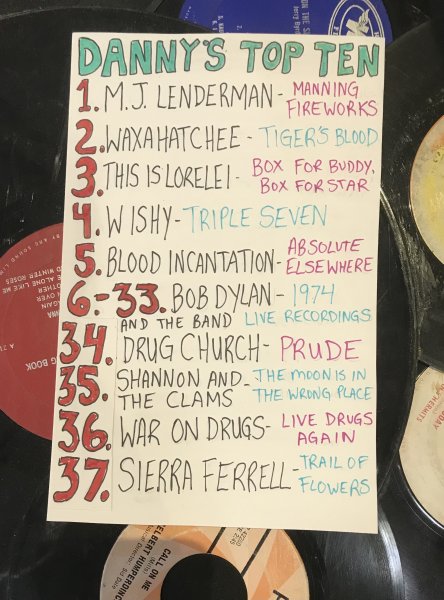 DANNY'S TOP TEN
1. M.J. LENDERMAN - MANNING
FIREWORKS
2. WAXAHATCHEE - TIGER'S BLOOD
3. THIS IS LORELEI - BOX FOR BUDDY,
BOX FOR STAR
4. WISHY - TRIPLE SEVEN
5. BLOOD INCANTATION - ABSOLUTE
ELSEWHERE
6.-33. BOB DYLAN - 1974
AND THE BAND LIVE RECORDINGS
34. DRUG CHURCH - PRUDE
35. SHANNON AND - THE MOON IS IN
THE CLAMS THE WRONG PLACE
36. WAR ON DRUGS - LIVE DRUGS
AGAIN
37. SIERRA FERRELL - TRAIL OF
FLOWERS
CALL ON ME
ELBERT HUMPERDINC